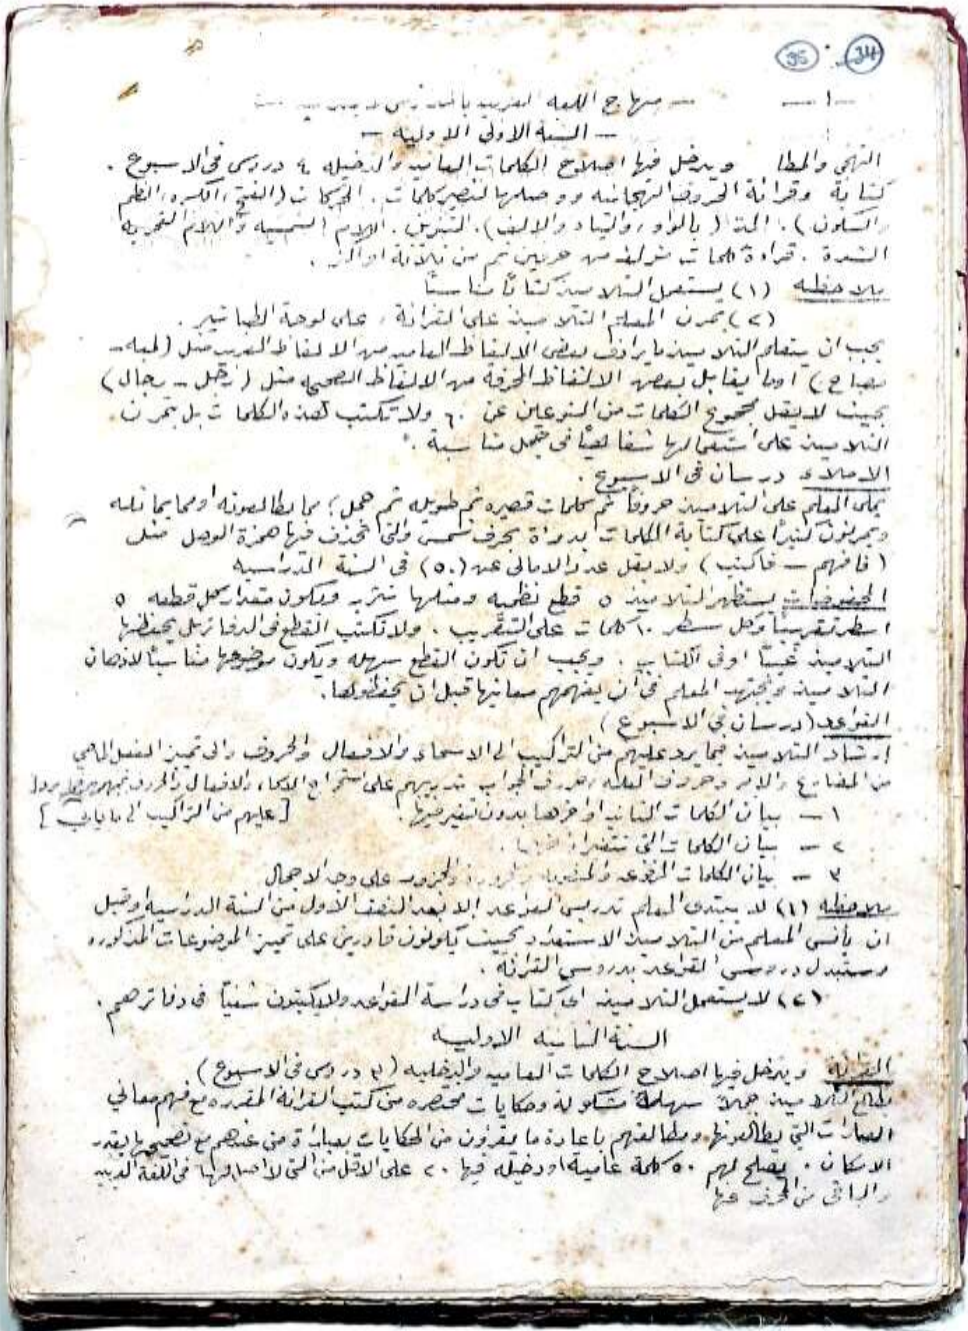 35 34
- ١ - منهاج اللغة العربية
- السنة الاولى الاولية -
التهجي والمطا ويدخل فيها اصلاح الكلمات العامية والدخيلة ٤ دروس في الاسبوع .
كتابة وقراءة الحروف الهجائية ووصلها لتصير كلمات . الحركات (الفتح، الكسر، الضم
والسكون) . المد (بالواو والياء والالف) . التنوين . اللام الشمسية واللام القمرية
الشدة . قراءة كلمات تتركب من حرفين ثم من ثلاثة او اكثر .
ملاحظة (١) يستعمل التلاميذ كتاباً مناسباً
(٢) يمرن المعلم التلاميذ على القراءة على لوحة الطباشير .
يجب ان يتعلم التلاميذ ما يرادف بعض الالفاظ العامية من الالفاظ العربية مثل (لمبة -
مصباح) او ما يقابل بعض الالفاظ المحرفة من الالفاظ الصحيحة مثل (رجّل - رجال)
بحيث لا يقل مجموع الكلمات من النوعين عن ٦٠ ولا تكتب هذه الكلمات بل يتمرن
التلاميذ على استعمالها شفاهياً في جمل مناسبة .
الاملاء درسان في الاسبوع .
يملي المعلم على التلاميذ حروفاً ثم كلمات قصيرة ثم طويلة ثم جمل مما يطالعونه او مما يماثله
ويمرنون كثيراً على كتابة الكلمات مبدوءة بحرف شمسي والتي تحذف فيها همزة الوصل مثل
(فافهم - فاكتب) ولا يقل عدد الامالي عن (٥٠) في السنة الدراسية
المحفوظات يستظهر التلاميذ ٥ قطع نظمية ومثلها نثرية ويكون مقدار كل قطعة ٥
اسطر تقريباً وكل سطر ١٠ كلمات على التقريب . ولا تكتب القطع في الدفاتر بل يحفظها
التلاميذ غيباً او في الكتاب . ويجب ان تكون القطع سهلة ويكون موضوعها مناسباً لاذهان
التلاميذ ويجتهد المعلم في أن يفهمهم معانيها قبل ان يحفظوها .
القواعد (درسان في الاسبوع)
ارشاد التلاميذ فيما يرد عليهم من التراكيب الى الاسماء والافعال والحروف والى تمييز الفعل الماضي
من المضارع والامر وحروف الجواب تدريبهم على استخراج الاسماء والافعال والحروف
[عليهم من التراكيب الى ما يأتي]
١ - بيان الكلمات الثابتة اواخرها بدون تغيير فيها .
٢ - بيان الكلمات التي تتغير
٣ - بيان الكلمات المرفوعة والمنصوبة على وجه الاجمال
ملاحظة (١) لا يبتدئ المعلم تدريس القواعد الا بعد النصف الاول من السنة الدراسية او قبل
ان يأنس المعلم من التلاميذ الاستعداد بحيث يكونون قادرين على تمييز الموضوعات المذكورة
وتستبدل دروس القواعد بدروس القراءة .
(٢) لا يستعمل التلاميذ اي كتاب في دراسة القواعد ولا يكتبون شيئاً في دفاترهم .
السنة الثانية الاولية
القراءة ويدخل فيها اصلاح الكلمات العامية والدخيلة (٣ دروس في الاسبوع)
يطالع التلاميذ جملاً سهلة مشكولة وحكايات مختصرة من كتب القراءة المقررة مع فهم معاني
العبارات التي يطالعونها ومطالبتهم باعادة ما يقرؤون من الحكايات بعبارة من عندهم مع تصحيحها بقدر
الامكان . يصلح لهم ٥٠ كلمة عامية او دخيلة فيها ٢٠ على الاقل من التي لا اصل لها في اللغة العربية
والباقي من المحرف عنها